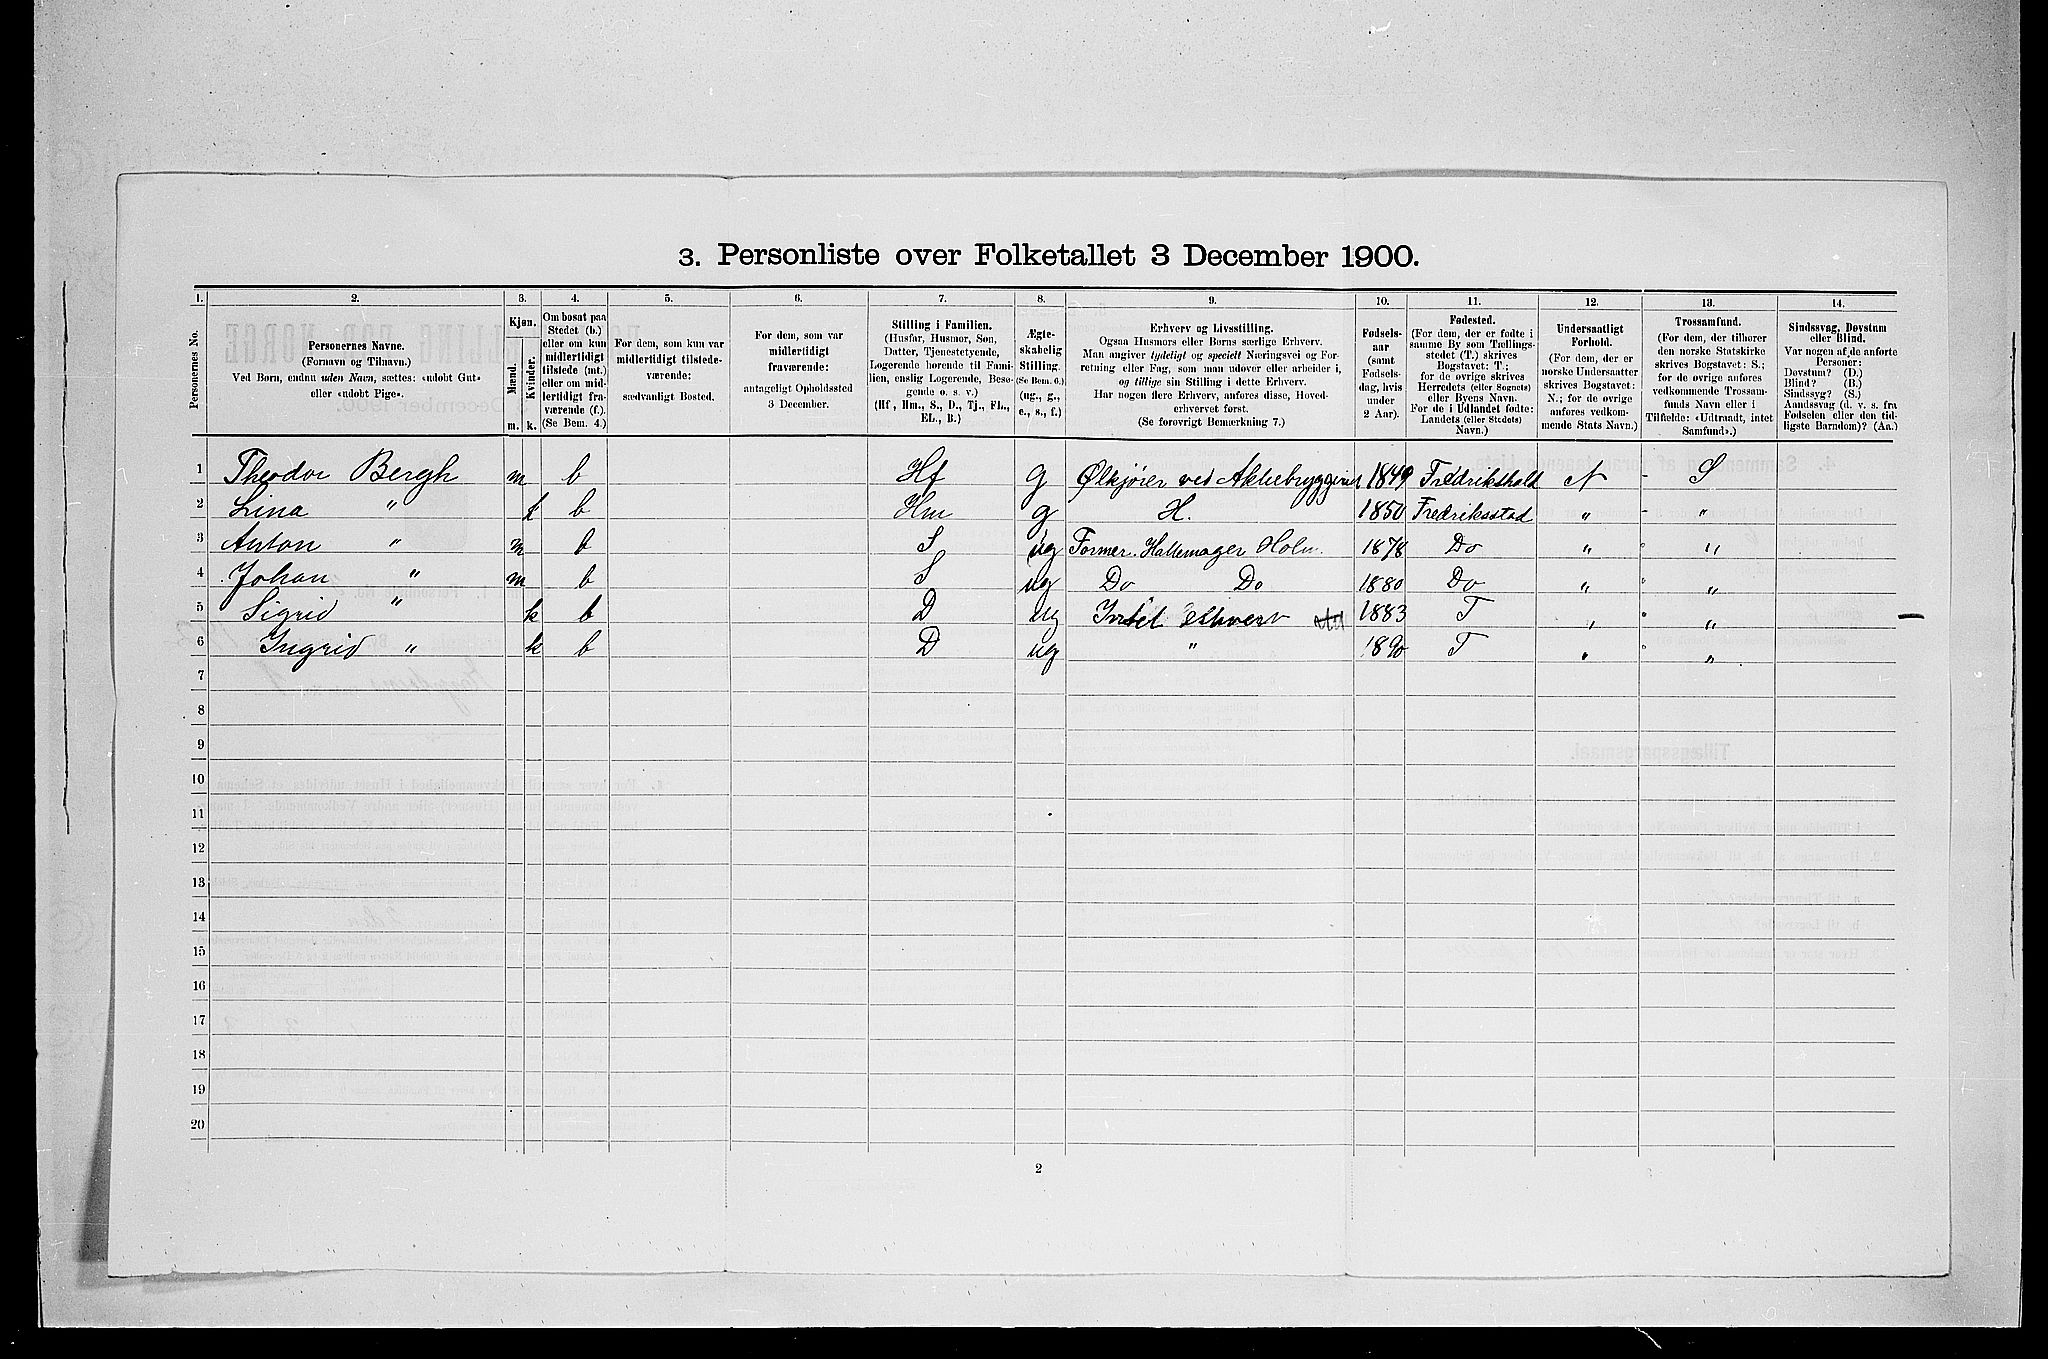 3. Personliste over Folketallet 3 December 1900.
1. 2. 3. 4. 5. 6. 7. 8. 9. 10. 11. 12. 13. 14.
Personernes No.
Personernes Navne.
(Fornavn og Tilnavn.)
Ved Børn, endnu uden Navn, sættes: «udøbt Gut»
eller «udøbt Pige».
Kjøn.
Mænd.
Kvinder.
m. k.
Om bosat paa
Stedet (b.)
eller om kun
midlertidigt
tilstede (mt.)
eller om mid-
lertidigt fra-
værende (f.).
(Se Bem. 4.)
For dem, som kun var
midlertidigt tilstede-
værende:
sædvanligt Bosted.
For dem, som var
midlertidigt
fraværende:
antageligt Opholdssted
3 December.
Stilling i Familien.
(Husfar, Husmor, Søn,
Datter, Tjenestetyende,
Logerende hørende til Fami-
lien, enslig Logerende, Besø-
gende o. s. v.)
(Hf, Hm., S., D., Tj., FL.,
EL., B.)
Ægte-
skabelig
Stilling.
(Se Bem. 6.)
(ug., g.,
e., s., f.)
Erhverv og Livsstilling.
Ogsaa Husmors eller Børns særlige Erhverv.
Man angiver tydeligt og specielt Næringsvei og For-
retning eller Fag, som man udøver eller arbeider i,
og tillige sin Stilling i dette Erhverv.
Har nogen flere Erhverv, anføres disse, Hoved-
erhvervet først.
(Se forøvrigt Bemærkning 7.)
Fødsels-
aar
(samt
Fødsels-
dag, hvis
under
2 Aar).
Fødested.
(For dem, der er fødte i
samme By som Tællings-
stedet (T.) skrives
Bogstavet: T.;
for de øvrige skrives
Herredets (eller Sognets)
eller Byens Navn.
For de i Udlandet fødte:
Landets (eller Stedets)
Navn.)
Undersaatligt
Forhold.
(For dem, der er
norske Undersaatter
skrives Bogstavet:
N.; for de øvrige
anføres vedkom-
mende Stats Navn.)
Trossamfund.
(For dem, der tilhører
den norske Statskirke
skrives Bogstavet: S.;
for de øvrige anføres
vedkommende Trossam-
funds Navn eller i
Tilfælde: «Udtraadt, intet
Samfund».)
Sindssvag, Døvstum
eller Blind.
Var nogen af de anførte
Personer:
Døvstum? (D.)
Blind? (B.)
Sindssyg? (S.)
Aandssvag (d. v. s. fra
Fødselen eller den tid-
ligste Barndom)? (Aa.)
1 Theodor Bergh m b Hf g Ølkjører ved Aktiebryggeriet 1849 Fredrikshald N S
2 Lina " k b Hm g H. 1850 Fredriksstad " "
3 Anton " m b S ug Former. Hattemager Holm. 1878 Do " "
4 Johan " m b S ug Do Do 1880 Do " "
5 Sigrid " k b D ug Intet Erhverv 1883 T " "
6 Ingrid " k b D ug " 1890 T " "
7
8
9
10
11
12
13
14
15
16
17
18
19
20
2